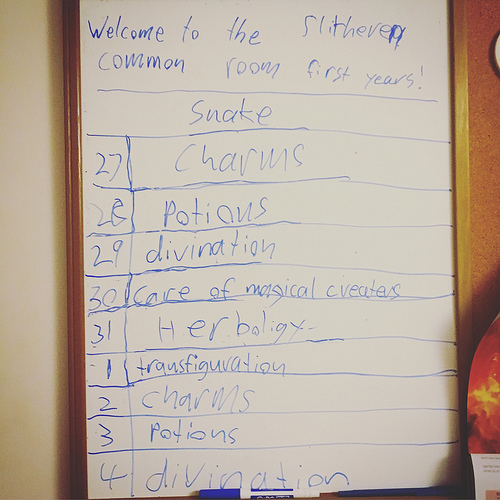 Welcome to the Slitheren
common room first years!
Snake
27 Charms
28 Potions
29 divination
30 Care of magical creaters
31 Herboligy
1 transfiguration
2 charms
3 Potions
4 divination